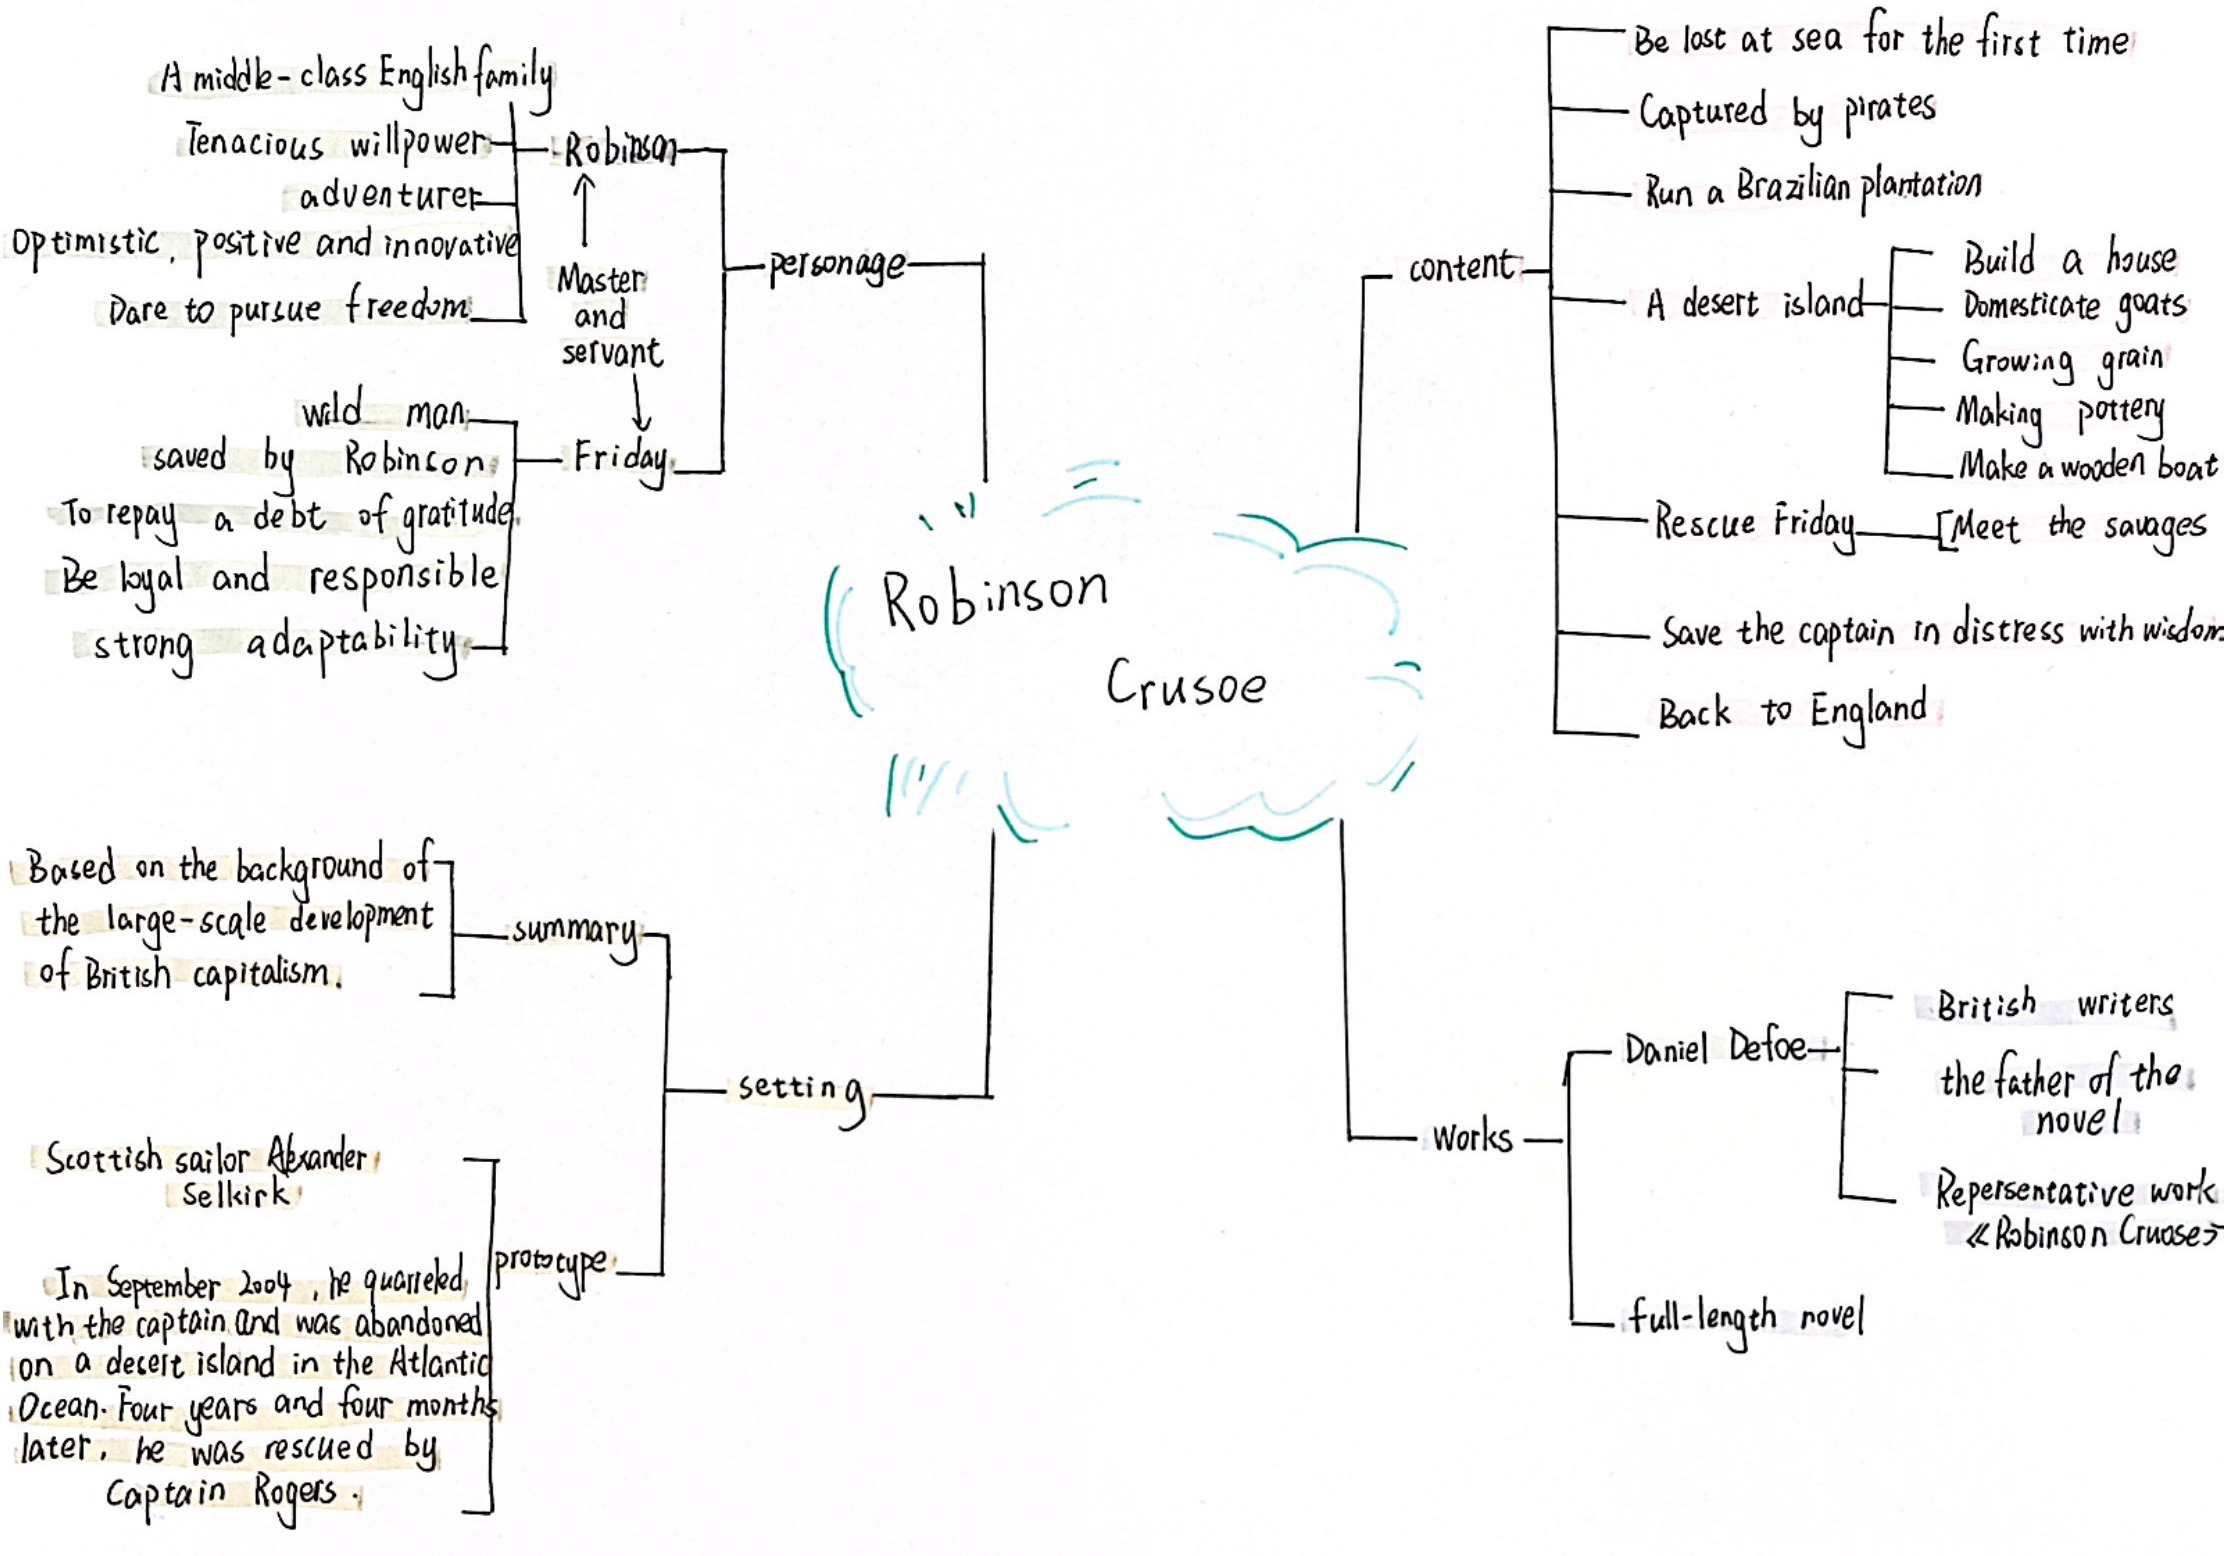 A middle-class English family
Tenacious willpower
adventurer
Optimistic, positive and innovative
Dare to pursue freedom
Robinson
Master
and
servant
wild man
saved by Robinson
To repay a debt of gratitude
Be loyal and responsible
strong adaptability
Friday
personage
Robinson
Crusoe
content
Be lost at sea for the first time
Captured by pirates
Run a Brazilian plantation
A desert island
Build a house
Domesticate goats
Growing grain
Making pottery
Make a wooden boat
Rescue Friday
Meet the savages
Save the captain in distress with wisdom
Back to England
Based on the background of
the large-scale development
of British capitalism.
summary
setting
Scottish sailor Alexander
Selkirk
In September 2004, he quarreled
with the captain and was abandoned
on a desert island in the Atlantic
Ocean. Four years and four months
later, he was rescued by
Captain Rogers.
prototype
Works
Daniel Defoe
British writers
the father of the
novel
Repersentative work
《Robinson Cruose》
full-length novel